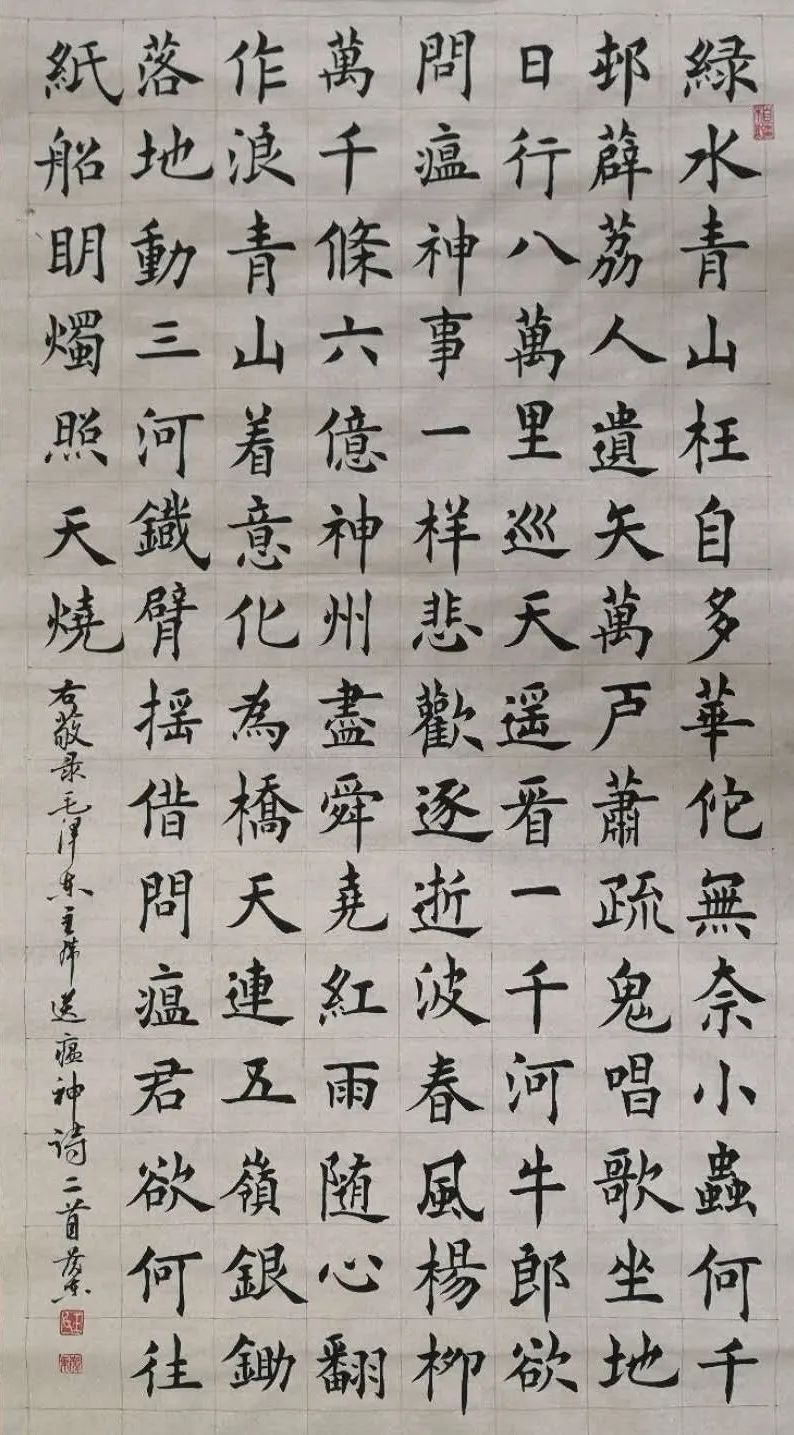 緑水青山枉自多華佗無奈小蟲何千
邨薜荔人遺矢萬戸蕭疏鬼唱歌坐地
日行八萬里巡天遥看一千河牛郎欲
問瘟神事一样悲歡逐逝波春風楊柳
萬千條六億神州盡舜堯紅雨随心翻
作浪青山着意化為橋天連五嶺銀鋤
落地動三河鐵臂摇借問瘟君欲何往
紙船眀燭照天燒
右敬录毛泽东主席送瘟神诗二首